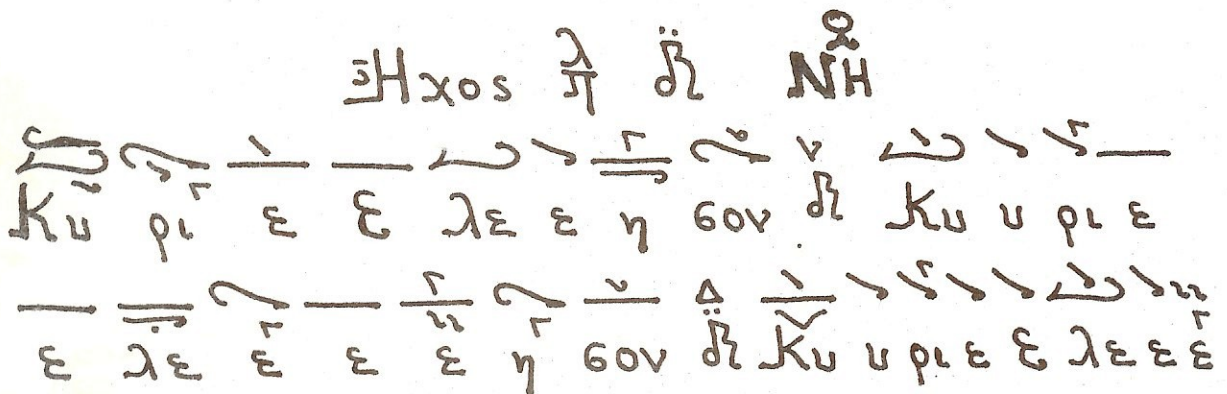 Ἦχος λπ δ̈ ΝΗ
Κυ ρι ε ε λε ε η σον ν δ Κυ υ ρι ε
ε λε ε ε ε η σον Δ δ̈ Κυ υ ρι ε ε λε ε ε